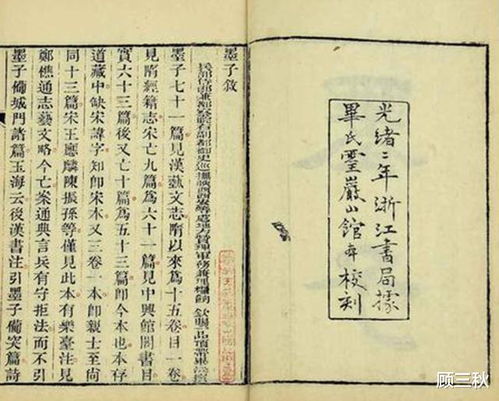 光緒二年浙江書局據
畢氏靈巖山館本校刻
墨子敘
墨子七十一篇見漢藝文志隋以來為十五卷目一卷
見隋經籍志宋亡九篇為六十一篇見中興館閣書目
實六十三篇後又亡十篇為五十三篇即今本也本存
道藏中缺宋諱字知即宋本又三卷一本即親士至尚
同十三篇宋王應麟陳振孫等僅見此本有樂臺注見
鄭樵通志藝文略今亡案通典言兵有守拒法而不引
墨子備城門諸篇玉海云後漢書注引墨子備突篇詩
顾三秋